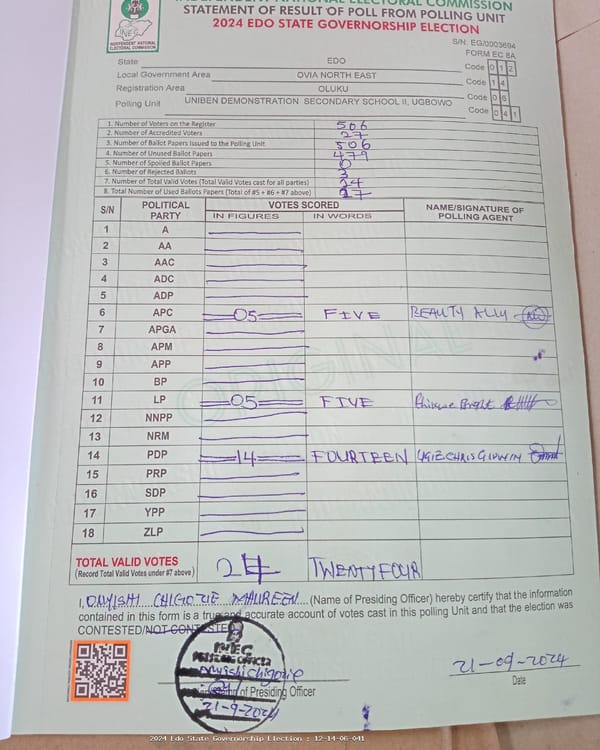 INDEPENDENT NATIONAL ELECTORAL COMMISSION
STATEMENT OF RESULT OF POLL FROM POLLING UNIT
2024 EDO STATE GOVERNORSHIP ELECTION
INEC
INDEPENDENT NATIONAL
ELECTORAL COMMISSION
S/N. EG/0003694
FORM EC 8A
State EDO Code 0 1 2
Local Government Area OVIA NORTH EAST Code 1 4
Registration Area OLUKU Code 0 6
Polling Unit UNIBEN DEMONSTRATION SECONDARY SCHOOL II, UGBOWO Code 0 4 1
1. Number of Voters on the Register 506
2. Number of Accredited Voters 27
3. Number of Ballot Papers Issued to the Polling Unit 506
4. Number of Unused Ballot Papers 479
5. Number of Spoiled Ballot Papers 0
6. Number of Rejected Ballots 3
7. Number of Total Valid Votes (Total Valid Votes cast for all parties) 24
8. Total Number of Used Ballots Papers (Total of #5 + #6 + #7 above) 27
S/N POLITICAL PARTY VOTES SCORED NAME/SIGNATURE OF POLLING AGENT
IN FIGURES IN WORDS
1 A
2 AA
3 AAC
4 ADC
5 ADP
6 APC 05 FIVE BEAUTY ALLY
7 APGA
8 APM
9 APP
10 BP
11 LP 05 FIVE Bright
12 NNPP
13 NRM
14 PDP 14 FOURTEEN
15 PRP
16 SDP
17 YPP
18 ZLP
ORIGINAL
TOTAL VALID VOTES 24 TWENTYFOUR
(Record Total Valid Votes under #7 above)
I, ONYISHI CHIGOZIE MAUREEN (Name of Presiding Officer) hereby certify that the information
contained in this form is a true and accurate account of votes cast in this polling Unit and that the election was
CONTESTED/NOT CONTESTED
INEC
PRESIDING OFFICER
Onyishi chigozie
21-9-2024
of Presiding Officer
21-09-2024
Date
2024 Edo State Governorship Election : 12-14-06-041